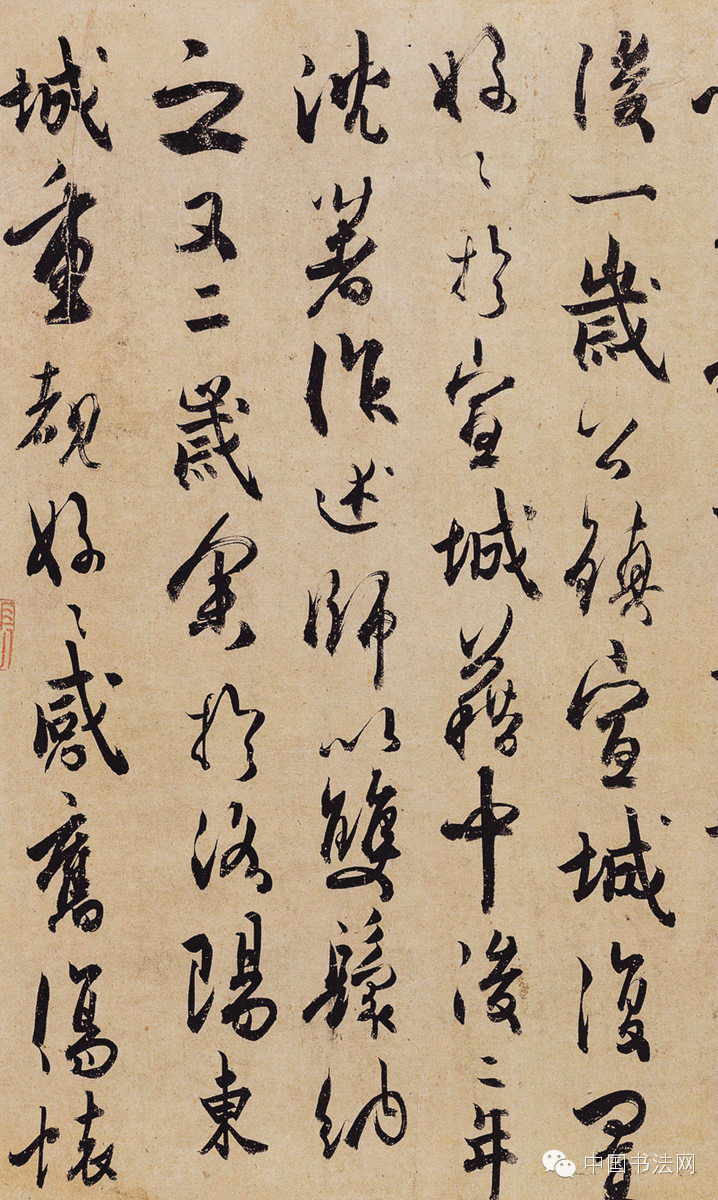 後一歲公鎮宣城復置
好〻於宣城籍中後二年
沈著作述師以雙鬟納
之又二歲余於洛陽東
城重覩好〻感舊傷懷
中国书法网